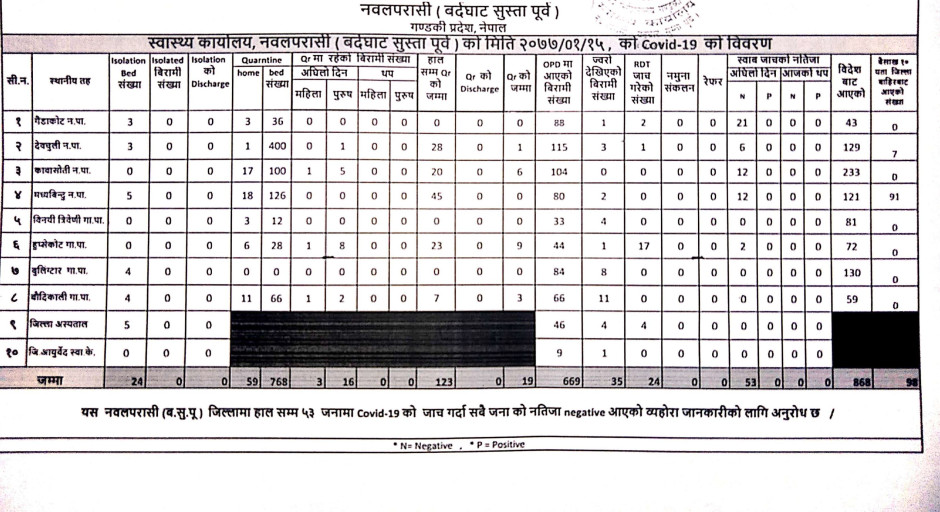 नवलपरासी ( बर्दघाट सुस्ता पूर्व )
गण्डकी प्रदेश, नेपाल
स्वास्थ्य कार्यालय, नवलपरासी ( बर्दघाट सुस्ता पूर्व ) को मिति २०७७/०१/१५ , को Covid-19 को विवरण
सी.न. स्थानीय तह Isolation Bed संख्या Isolated बिरामी संख्या Isolation को Discharge Quarntine home bed संख्या Qr मा रहेको बिरामी संख्या अघिलो दिन थप महिला पुरुष महिला पुरुष हाल सम्म Qr को जम्मा Qr को Discharge Qr को जम्मा OPD मा आएको बिरामी संख्या ज्वरो देखिएको बिरामी संख्या RDT जाच गरेको संख्या नमुना संकलन रेफर स्वाब जाचको नतिजा अघिलो दिन आजको थप N P N P विदेश बाट आएको बैसाख १० यता जिल्ला बाहिरबाट आएको संख्या
१ गैडाकोट न.पा. 3 0 0 3 36 0 0 0 0 0 0 0 88 1 2 0 0 21 0 0 0 43 0
२ देवचुली न.पा. 3 0 0 1 400 0 1 0 0 28 0 1 115 3 1 0 0 6 0 0 0 129 7
३ कावासोती न.पा. 0 0 0 17 100 1 5 0 0 20 0 6 104 0 0 0 0 12 0 0 0 233 0
४ मध्यबिन्दु न.पा. 5 0 0 18 126 0 0 0 0 45 0 0 80 2 0 0 12 0 0 0 121 91
५ विनयी त्रिवेणी गा.पा. 0 0 0 3 12 0 0 0 0 0 0 0 33 4 0 0 0 0 0 0 0 81 0
६ हुप्सेकोट गा.पा. 0 0 0 6 28 1 8 0 0 23 0 9 44 1 17 0 0 2 0 0 0 72 0
७ बुलिंग्टार गा.पा. 4 0 0 0 0 0 0 0 0 0 0 0 84 8 0 0 0 0 0 0 130 0
८ बौदिकाली गा.पा. 4 0 0 11 66 1 2 0 0 7 0 3 66 11 0 0 0 0 0 0 59 0
९ जिल्ला अस्पताल 5 0 0 46 4 4 0 0 0 0 0 0
१० जि.आयुर्वेद स्वा.के. 0 0 0 9 1 0 0 0 0 0 0 0
जम्मा 24 0 0 59 768 3 16 0 0 123 0 19 669 35 24 0 0 53 0 0 0 868 98
यस नवलपरासी (ब.सु.पू ) जिल्लामा हाल सम्म ५३ जनामा Covid-19 को जाच गर्दा सबै जना को नतिजा negative आएको व्यहोरा जानकारीको लागि अनुरोध छ /
* N= Negative , * P = Positive